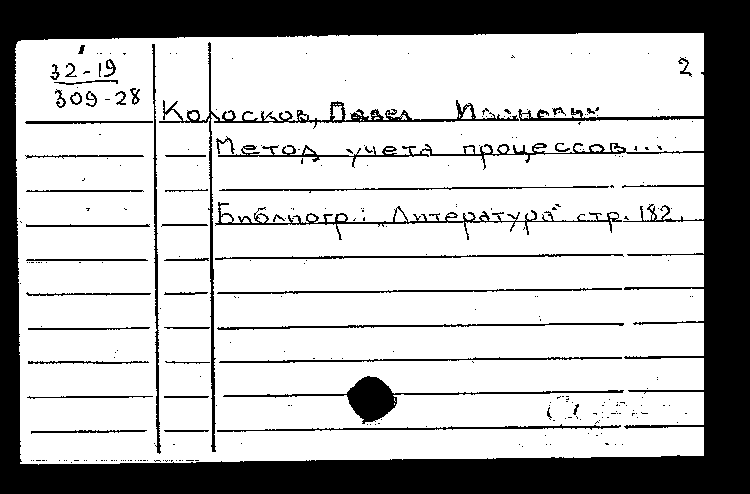 32-19
309-28
2.
Колосков, Павел Иванович
Метод учета процессов...
Библиогр.: „Литература" стр. 182.